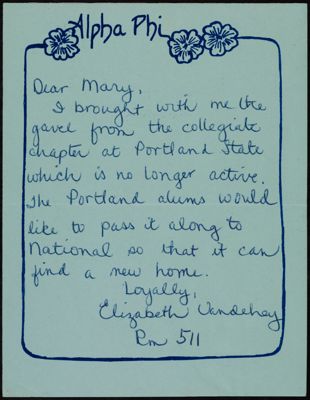 Alpha Phi
Dear Mary,
I brought with me the
gavel from the collegiate
chapter at Portland State
which is no longer active.
The Portland alums would
like to pass it along to
National so that it can
find a new home.
Loyally,
Elizabeth Vandehey
Rm 511